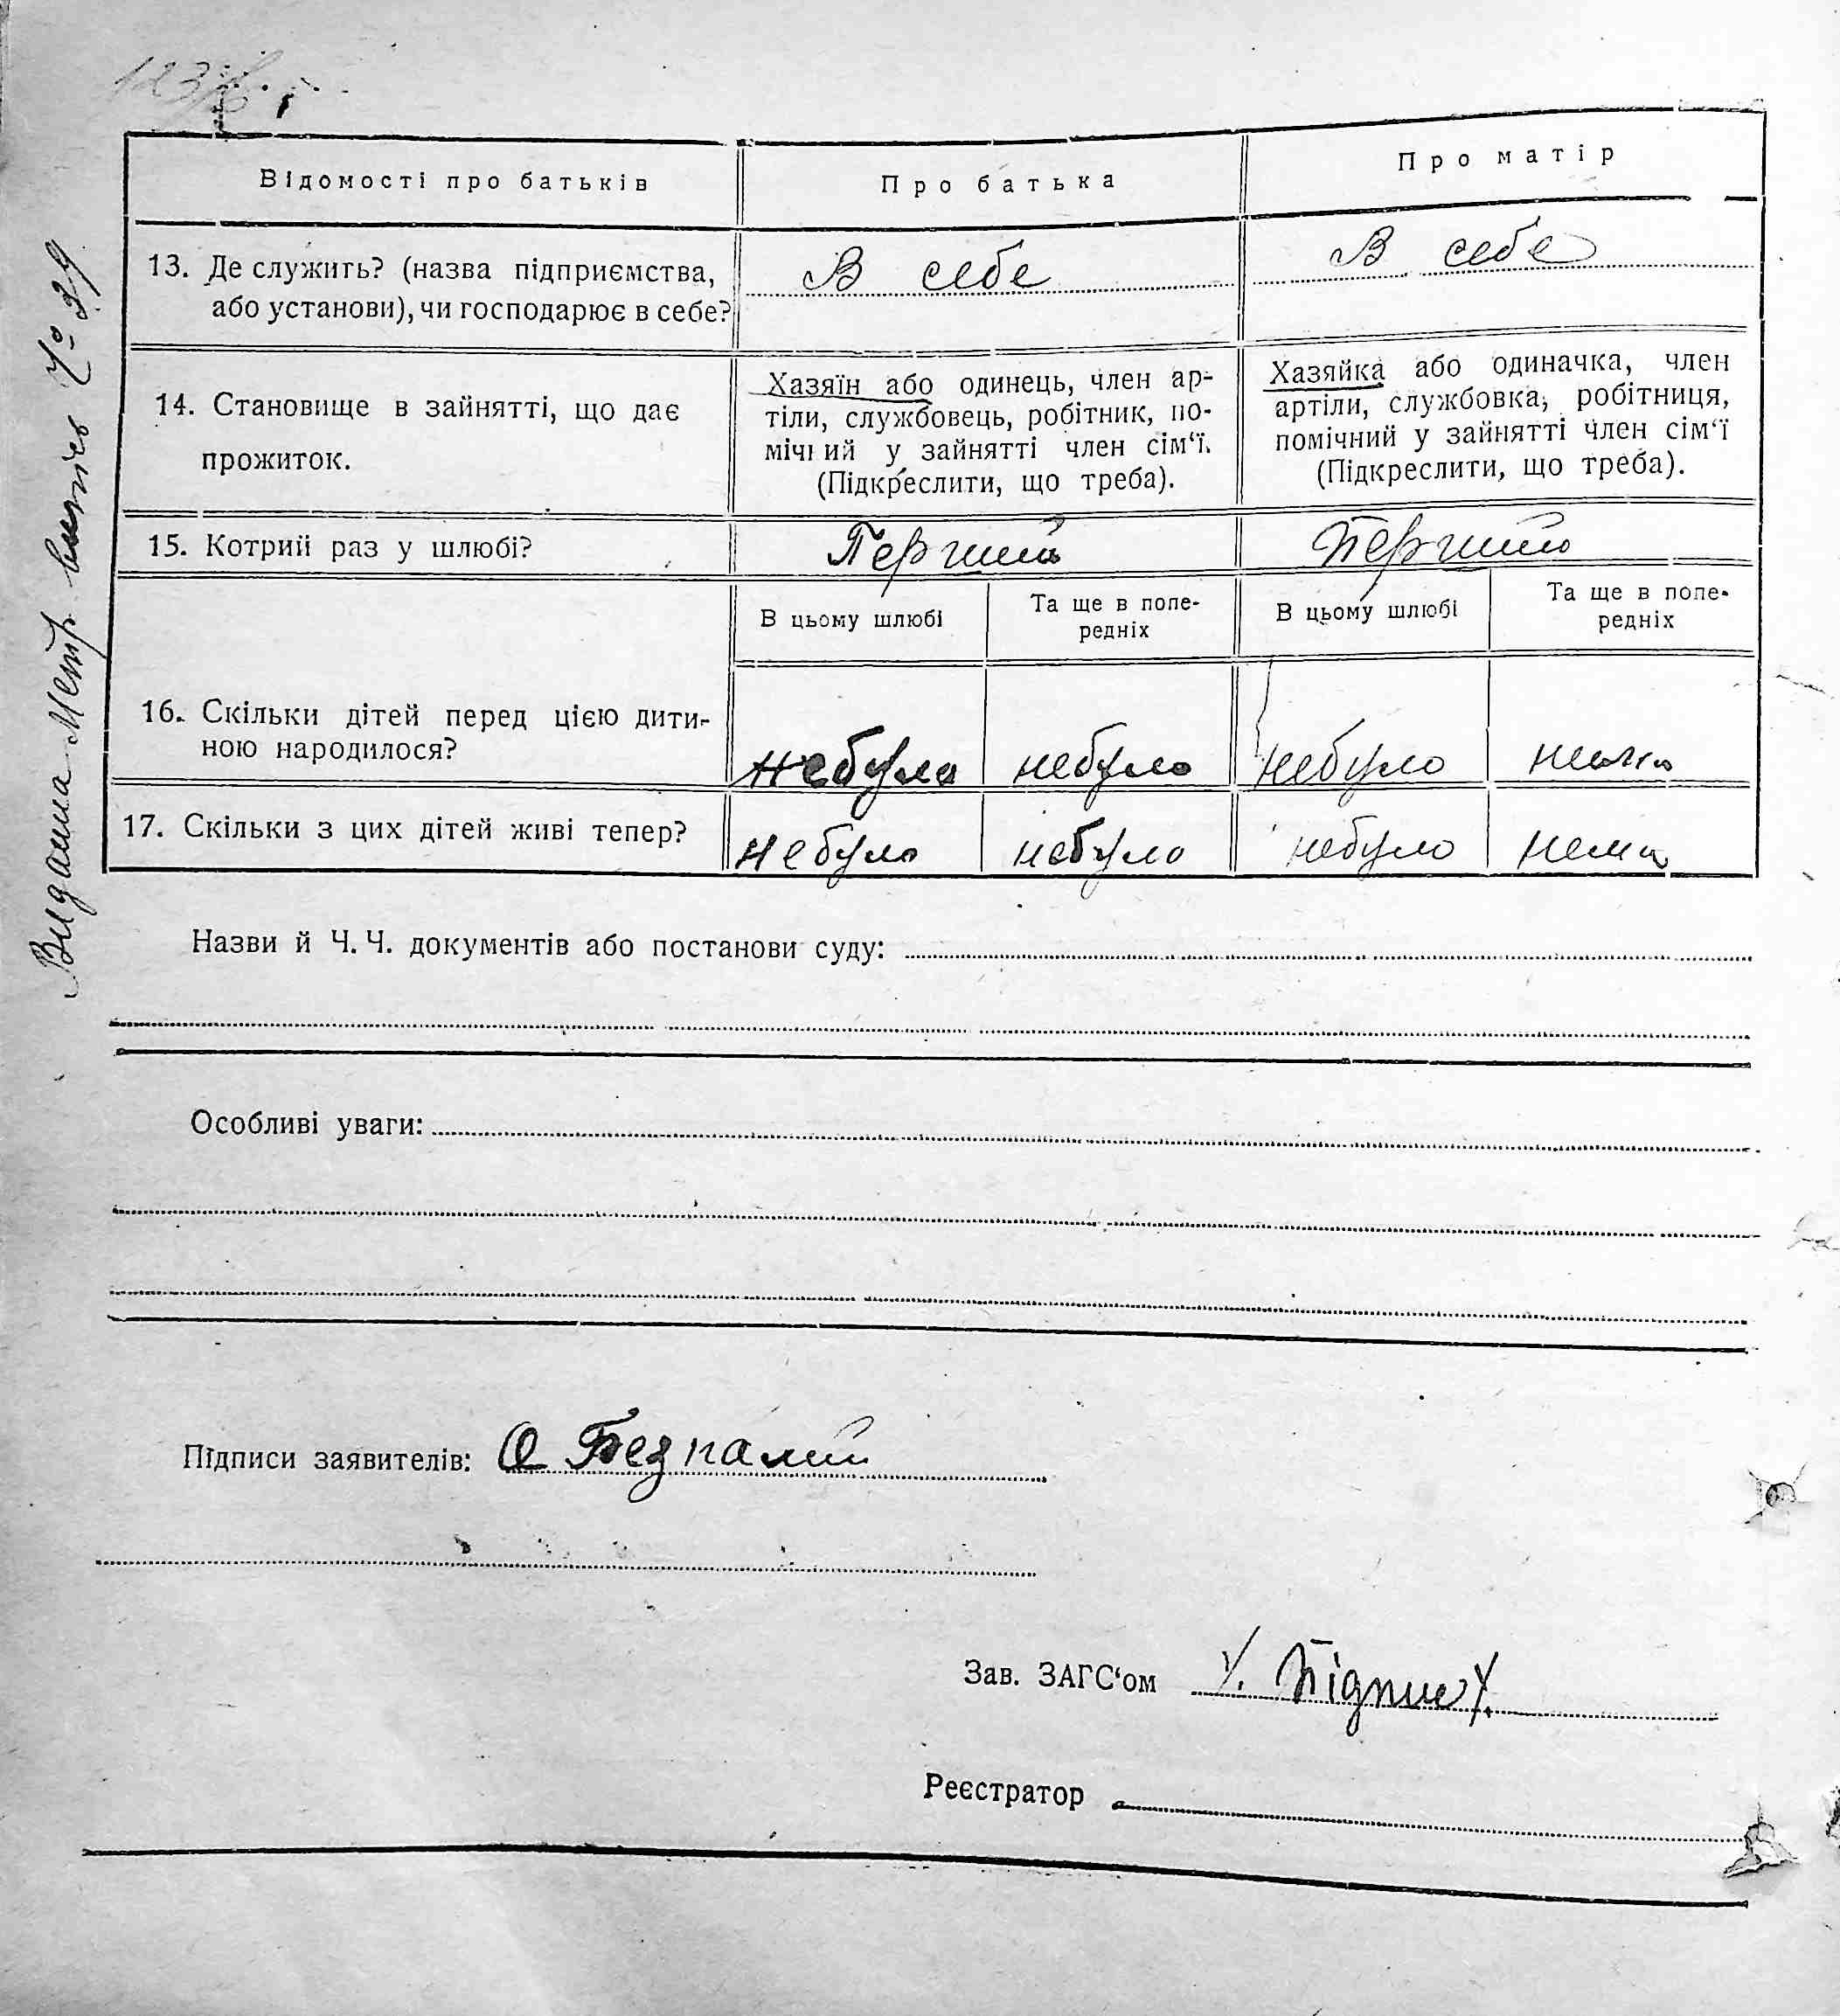 Відомості про батьків
Про батька
Про матір
13. Де служить? (назва підприємства,
або установи), чи господарює в себе?
В себе
В себе
14. Становище в зайнятті, що дає
прожиток.
Хазяїн або одинець, член ар-
тіли, службовець, робітник, по-
мічний у зайнятті член сім‘ї.
(Підкреслити, що треба).
Хазяйка або одиначка, член
артіли, службовка, робітниця,
помічний у зайнятті член сім‘ї
(Підкреслити, що треба).
15. Котрий раз у шлюбі?
Перший
Перший
В цьому шлюбі
Та ще в попе-
редніх
В цьому шлюбі
Та ще в попе-
редніх
16. Скільки дітей перед цією дити-
ною народилося?
небуло
небуло
небуло
нема
17. Скільки з цих дітей живі тепер?
небуло
небуло
небуло
нема
Назви й Ч. Ч. документів або постанови суду:
Особливі уваги:
Підписи заявителів: О Безпалий
Зав. ЗАГС‘ом Підпис
Реєстратор
Видана Метр. випись № 39